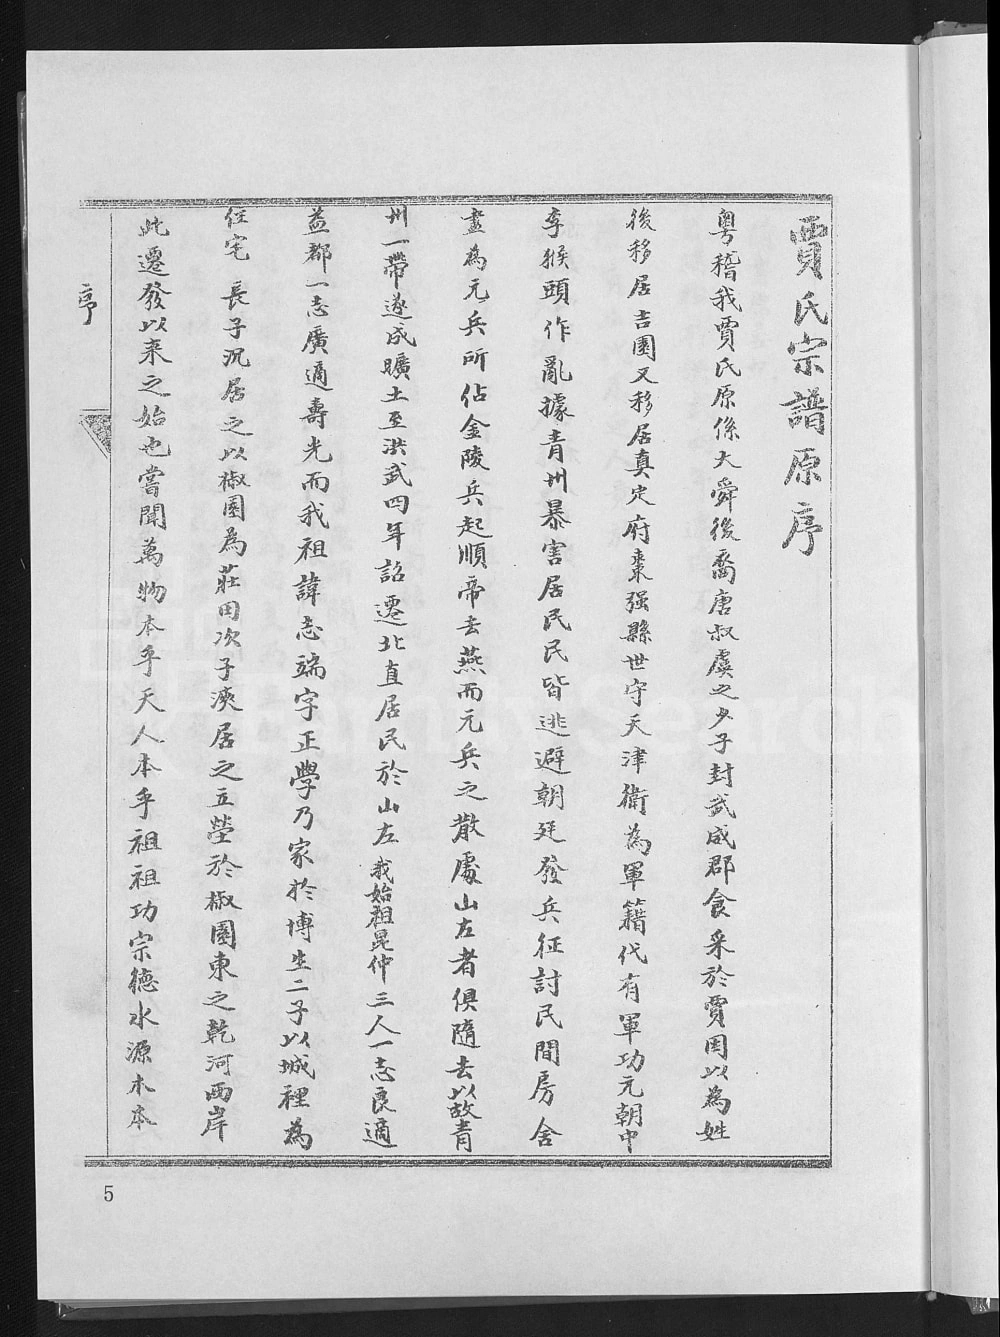 賈氏宗譜原序
粵稽我賈氏原係大舜後裔唐叔虞之少子封武威郡食采於賈因以為姓
後移居吉園又移居真定府棗强縣世守天津衛為軍籍代有軍功元朝中
李猴頭作亂據青州暴害居民民皆逃避朝廷發兵征討民間房舍
盡為元兵所佔金陵兵起順帝去燕而元兵之散處山左者俱隨去以故青
州一帶遂成曠土至洪武四年詔遷北直居民於山左我始祖昆仲三人一志良適
益都一志廣適壽光而我祖諱志端字正學乃家於博生二子以城裡為
住宅 長子沉居之以椒園為莊田次子浹居之立塋於椒園東之乾河西岸
此遷發以来之始也嘗聞萬物本乎天人本乎祖祖功宗德水源木本
序
5
FamilySearch